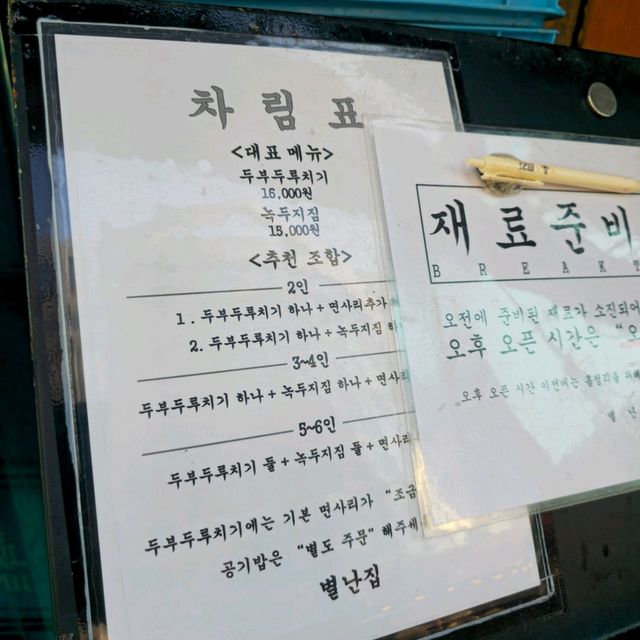 차림표
<대표 메뉴>
두부두루치기
16,000원
녹두지짐
15,000원
<추천 조합>
2인
1. 두부두루치기 하나 + 면사리추가
2. 두부두루치기 하나 + 녹두지짐
3~4인
두부두루치기 하나 + 녹두지짐 하나 + 면사리
5~6인
두부두루치기 둘 + 녹두지짐 둘 + 면사리
두부두루치기에는 기본 면사리가 "조금
공기밥은 "별도 주문" 해주세
별난집
재료준비
BREAK
오전에 준비된 재료가 소진되어
오후 오픈 시간은 "오
오후 오픈 시간 이전에는
별 난